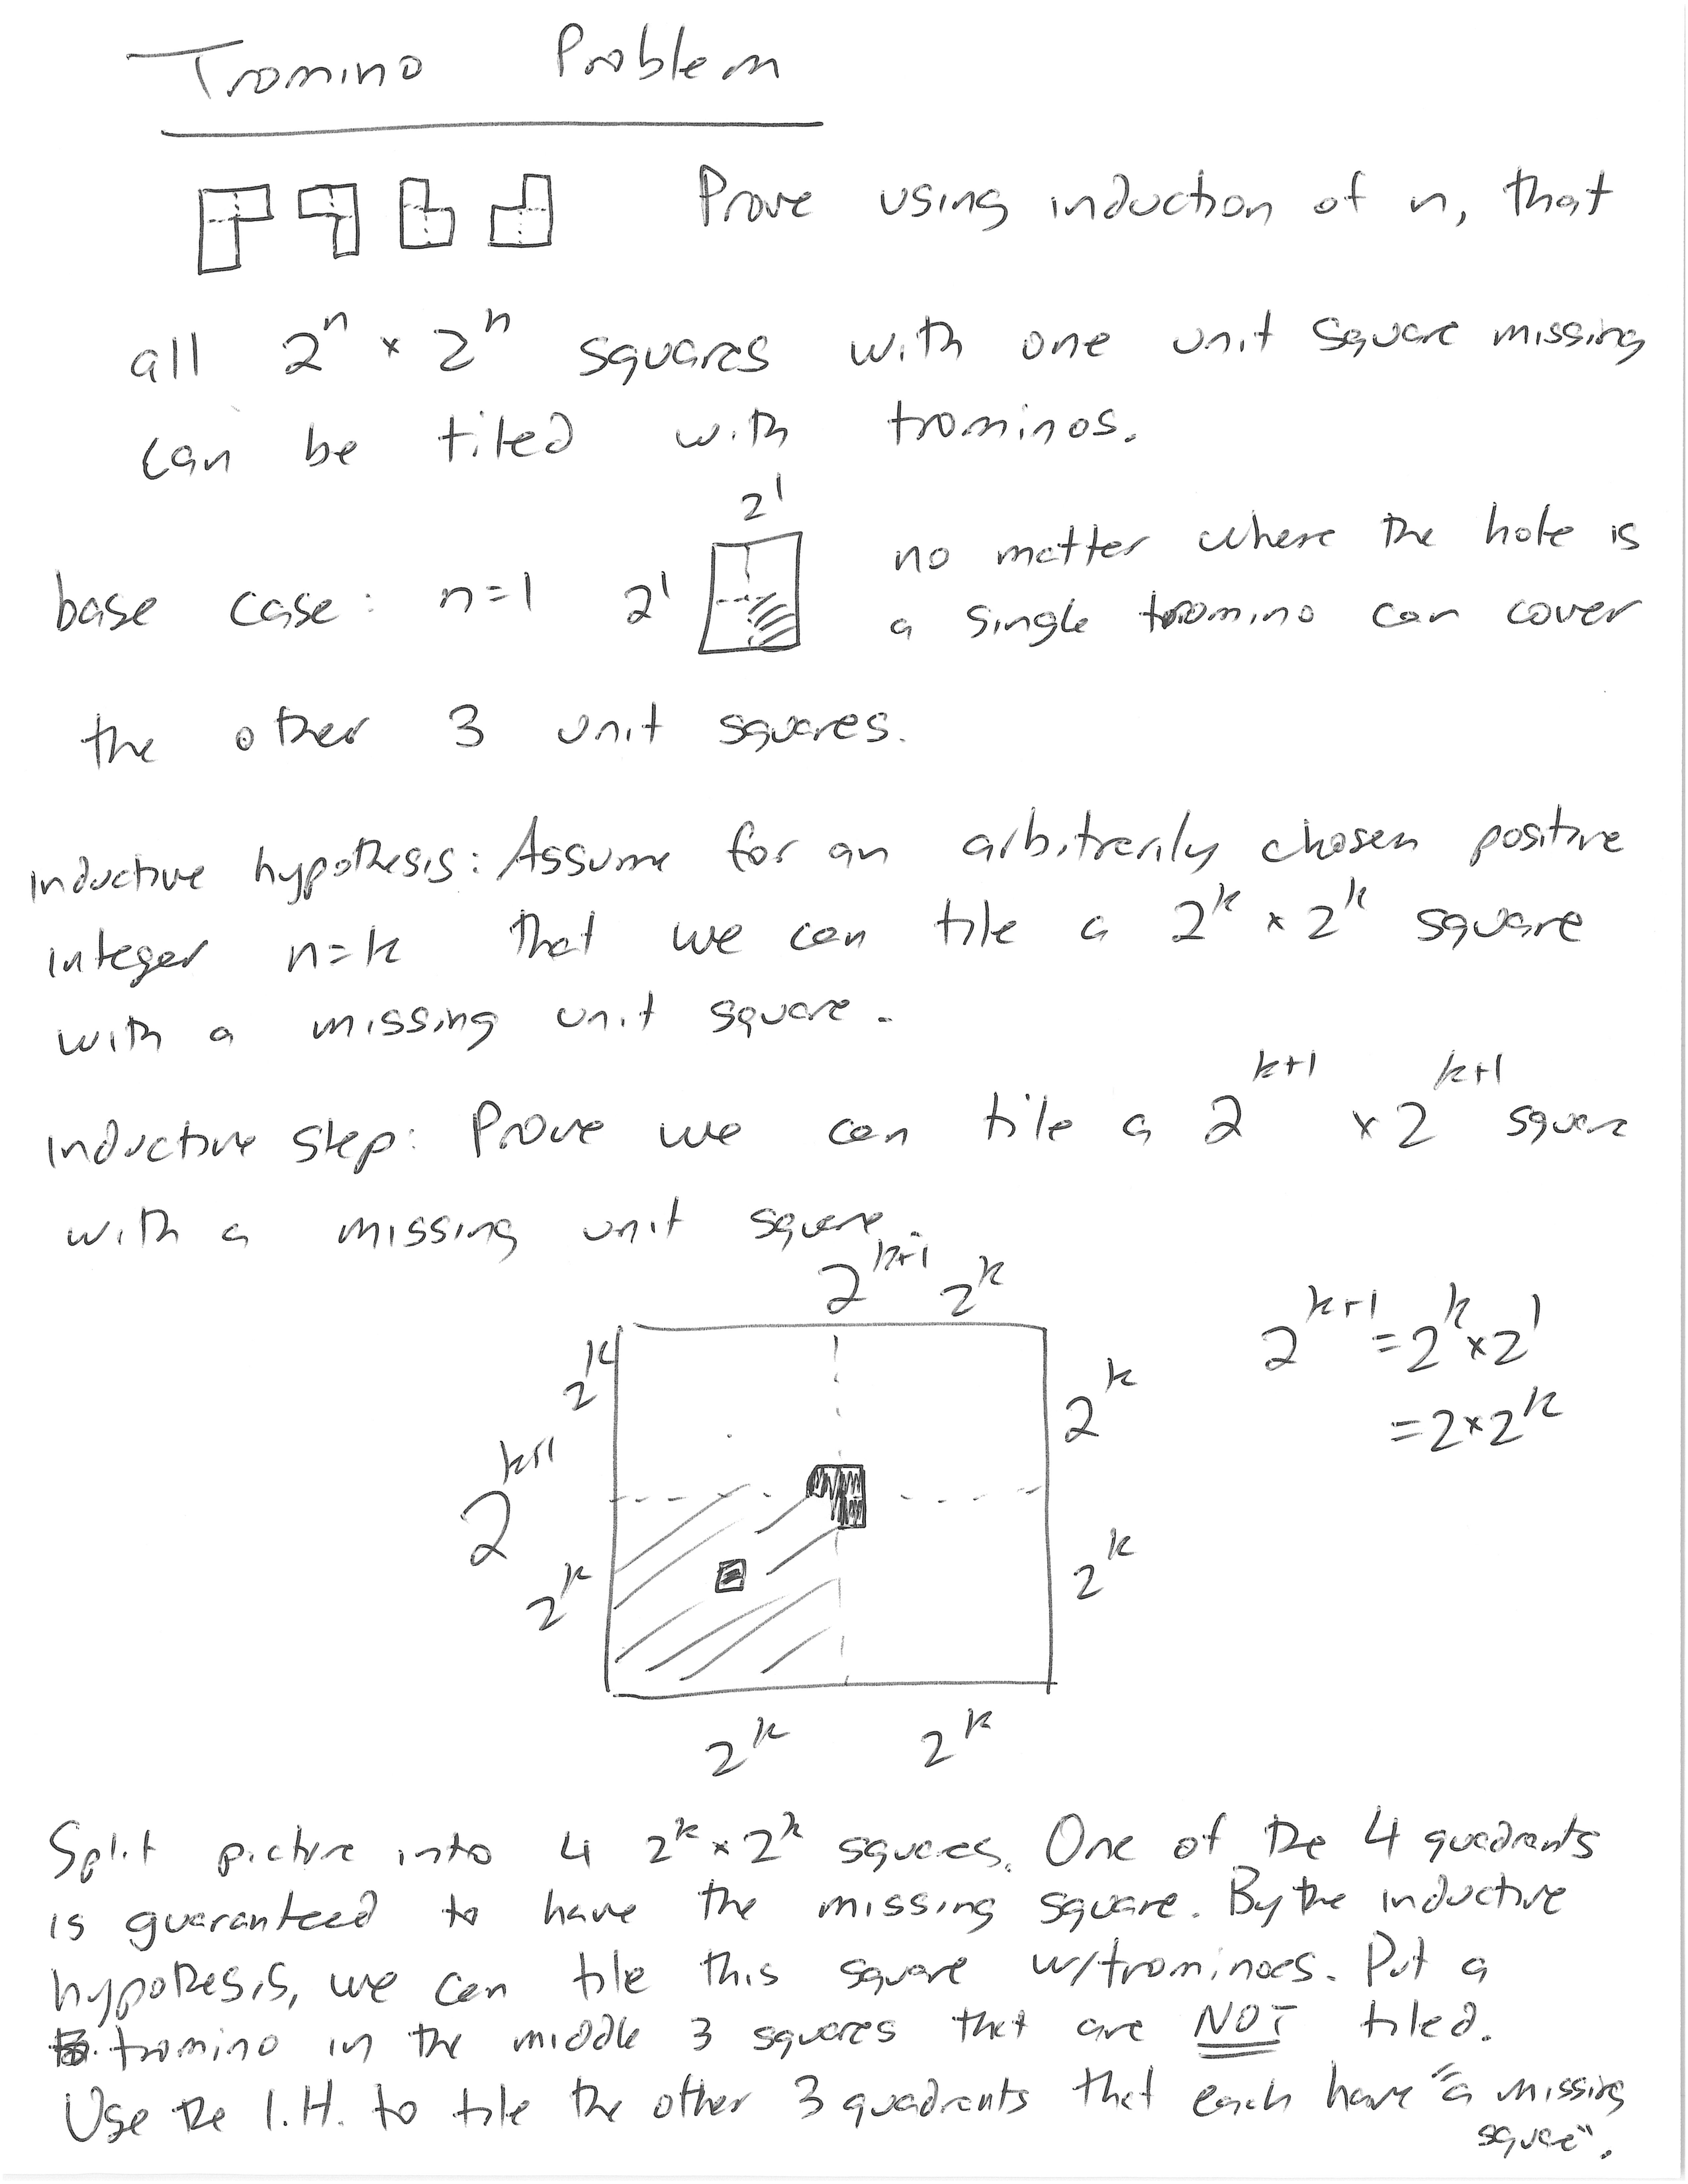 Tromino Problem
Prove using induction of n, that
all 2^n × 2^n squares with one unit square missing
can be tiled with trominos.
2^1
base case: n=1 2^1 no matter where the hole is
a single tromino can cover
the other 3 unit squares.
inductive hypothesis: Assume for an arbitrarily chosen positive
integer n=k that we can tile a 2^k × 2^k square
with a missing unit square.
inductive step: Prove we can tile a 2^(k+1) × 2^(k+1) square
with a missing unit square.
2^(k+1) 2^k
2^k 2^k
2^(k+1)
2^k 2^k
2^k 2^k
2^(k+1) = 2^k × 2^1
= 2 × 2^k
Split picture into 4 2^k × 2^k squares. One of the 4 quadrants
is guaranteed to have the missing square. By the inductive
hypothesis, we can tile this square w/trominoes. Put a
tromino in the middle 3 squares that are NOT tiled.
Use the I.H. to tile the other 3 quadrants that each have "a missing
square".